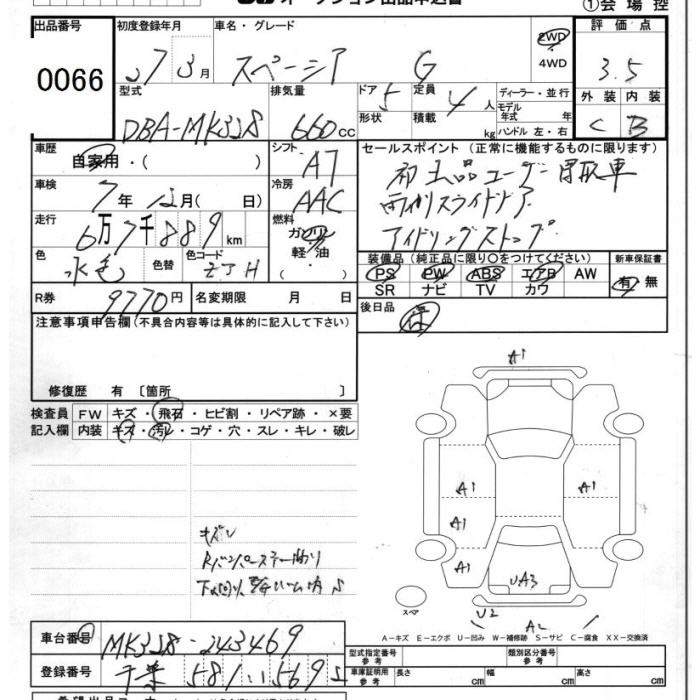 ①会場控
出品番号
0066
初度登録年月
27 3月
車名・グレード
スペーシア G
2WD
4WD
評価点
3.5
型式
DBA-MK32S
排気量
660cc
ドア 5
形状
定員 4人
積載 kg
ディーラー・並行
モデル年式 年
ハンドル 左・右
外装 内装
C B
車歴
自家用・( )
シフト
AT
セールスポイント (正常に機能するものに限ります)
両側スライドドア
アイドリングストップ
車検
7年12月( 日)
冷房
AAC
走行
6万7千889km
燃料
ガソリン
軽・油
・( )
色
水色
色替
色コード
ZJH
装備品 (純正品に限り○をつけてください)
PS PW ABS エアB AW
SR ナビ TV カワ
新車保証書
有 無
R券
9770円
名変期限 月 日
後日品
保
注意事項申告欄 (不具合内容等は具体的に記入して下さい)
修復歴 有 〔箇所 〕
検査員
記入欄
FW キズ・飛石・ヒビ割・リペア跡・×要
内装 キズ・汚レ・コゲ・穴・スレ・キレ・破レ
A1
A1 A1
A1
A1
UA3
U2
A2
スペア
A-キズ E-エクボ U-凹み W-補修跡 S-サビ C-腐食 XX-交換済
車台番号
MK32S-243469
登録番号
千葉 581 い 5695
型式指定番号
参考
類別区分番号
参考
車庫証明用
参考
長さ cm 幅 cm 高さ cm